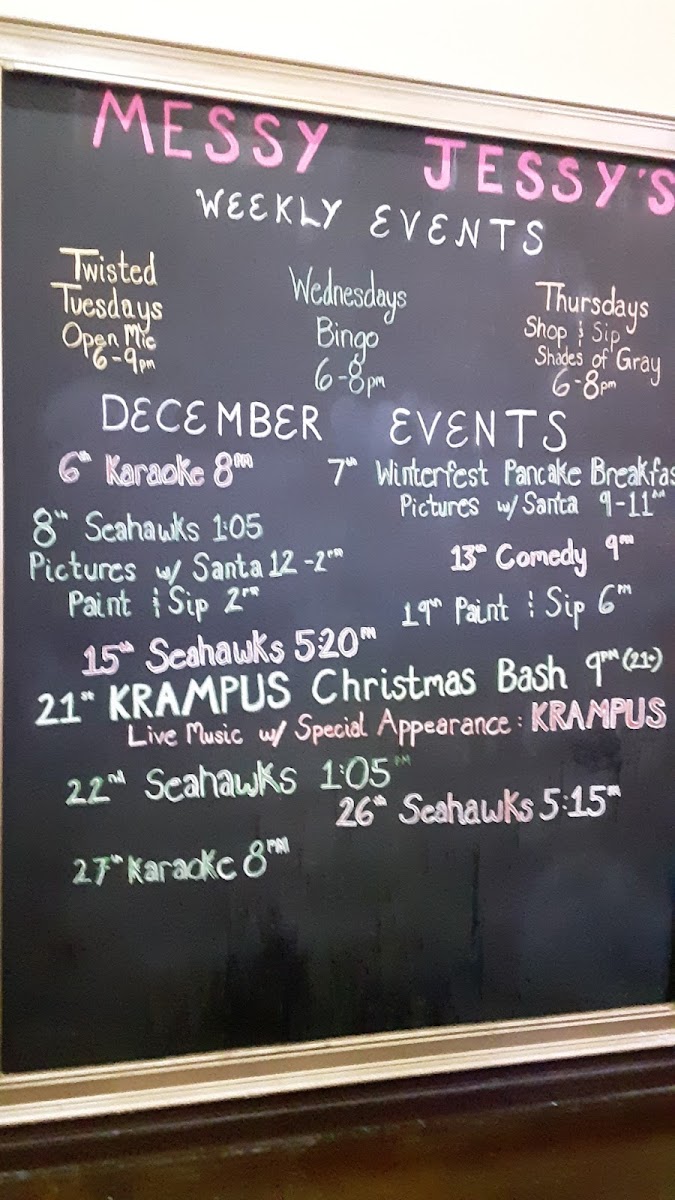 MESSY JESSY'S
WEEKLY EVENTS
Twisted
Tuesdays
Open Mic
6-9pm
Wednesdays
Bingo
6-8pm
Thursdays
Shop & Sip
Shades of Gray
6-8pm
DECEMBER EVENTS
6th Karaoke 8PM
7th Winterfest Pancake Breakfas
Pictures w/ Santa 9-11AM
8th Seahawks 1:05
Pictures w/ Santa 12-2PM
Paint & Sip 2PM
13th Comedy 9PM
19th Paint & Sip 6PM
15th Seahawks 5:20PM
21st KRAMPUS Christmas Bash 9PM (21+)
Live Music w/ Special Appearance: KRAMPUS
22nd Seahawks 1:05PM
26th Seahawks 5:15PM
27th Karaoke 8PM